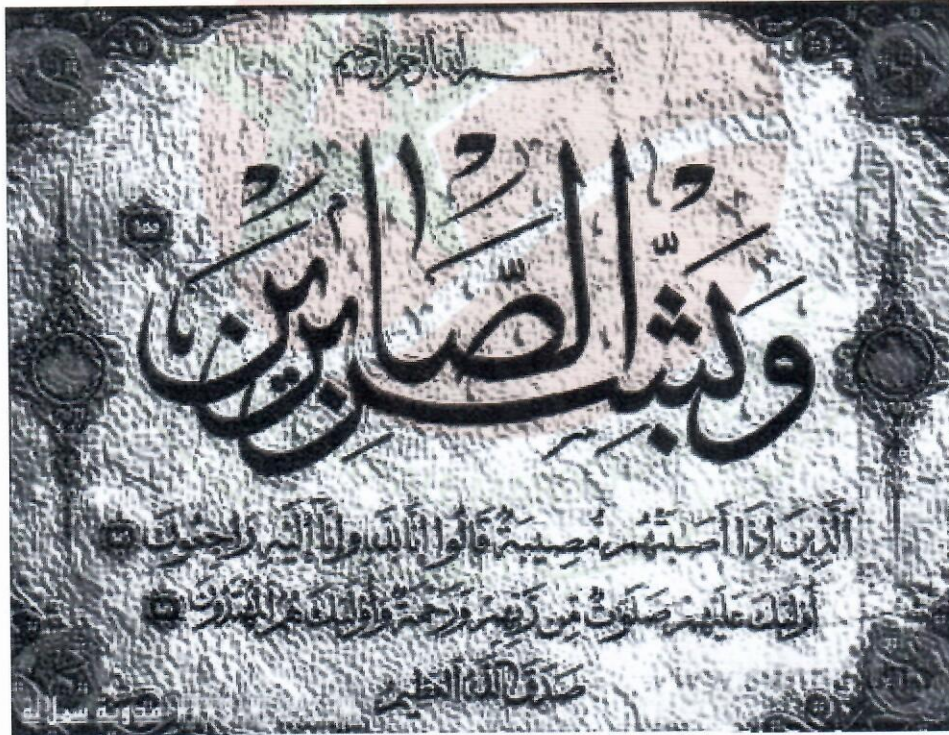 بسم الله الرحمن الرحيم
وَبَشِّرِ الصَّابِرِينَ
ٱلَّذِينَ إِذَا أَصَٰبَتْهُم مُّصِيبَةٌ قَالُوا إِنَّا لِلَّهِ وَإِنَّا إِلَيْهِ رَاجِعُونَ
أُولَٰئِكَ عَلَيْهِمْ صَلَوَٰتٌ مِّن رَّبِّهِمْ وَرَحْمَةٌ وَأُولَٰئِكَ هُمُ ٱلْمُهْتَدُونَ
صدق الله العظيم
مدونة